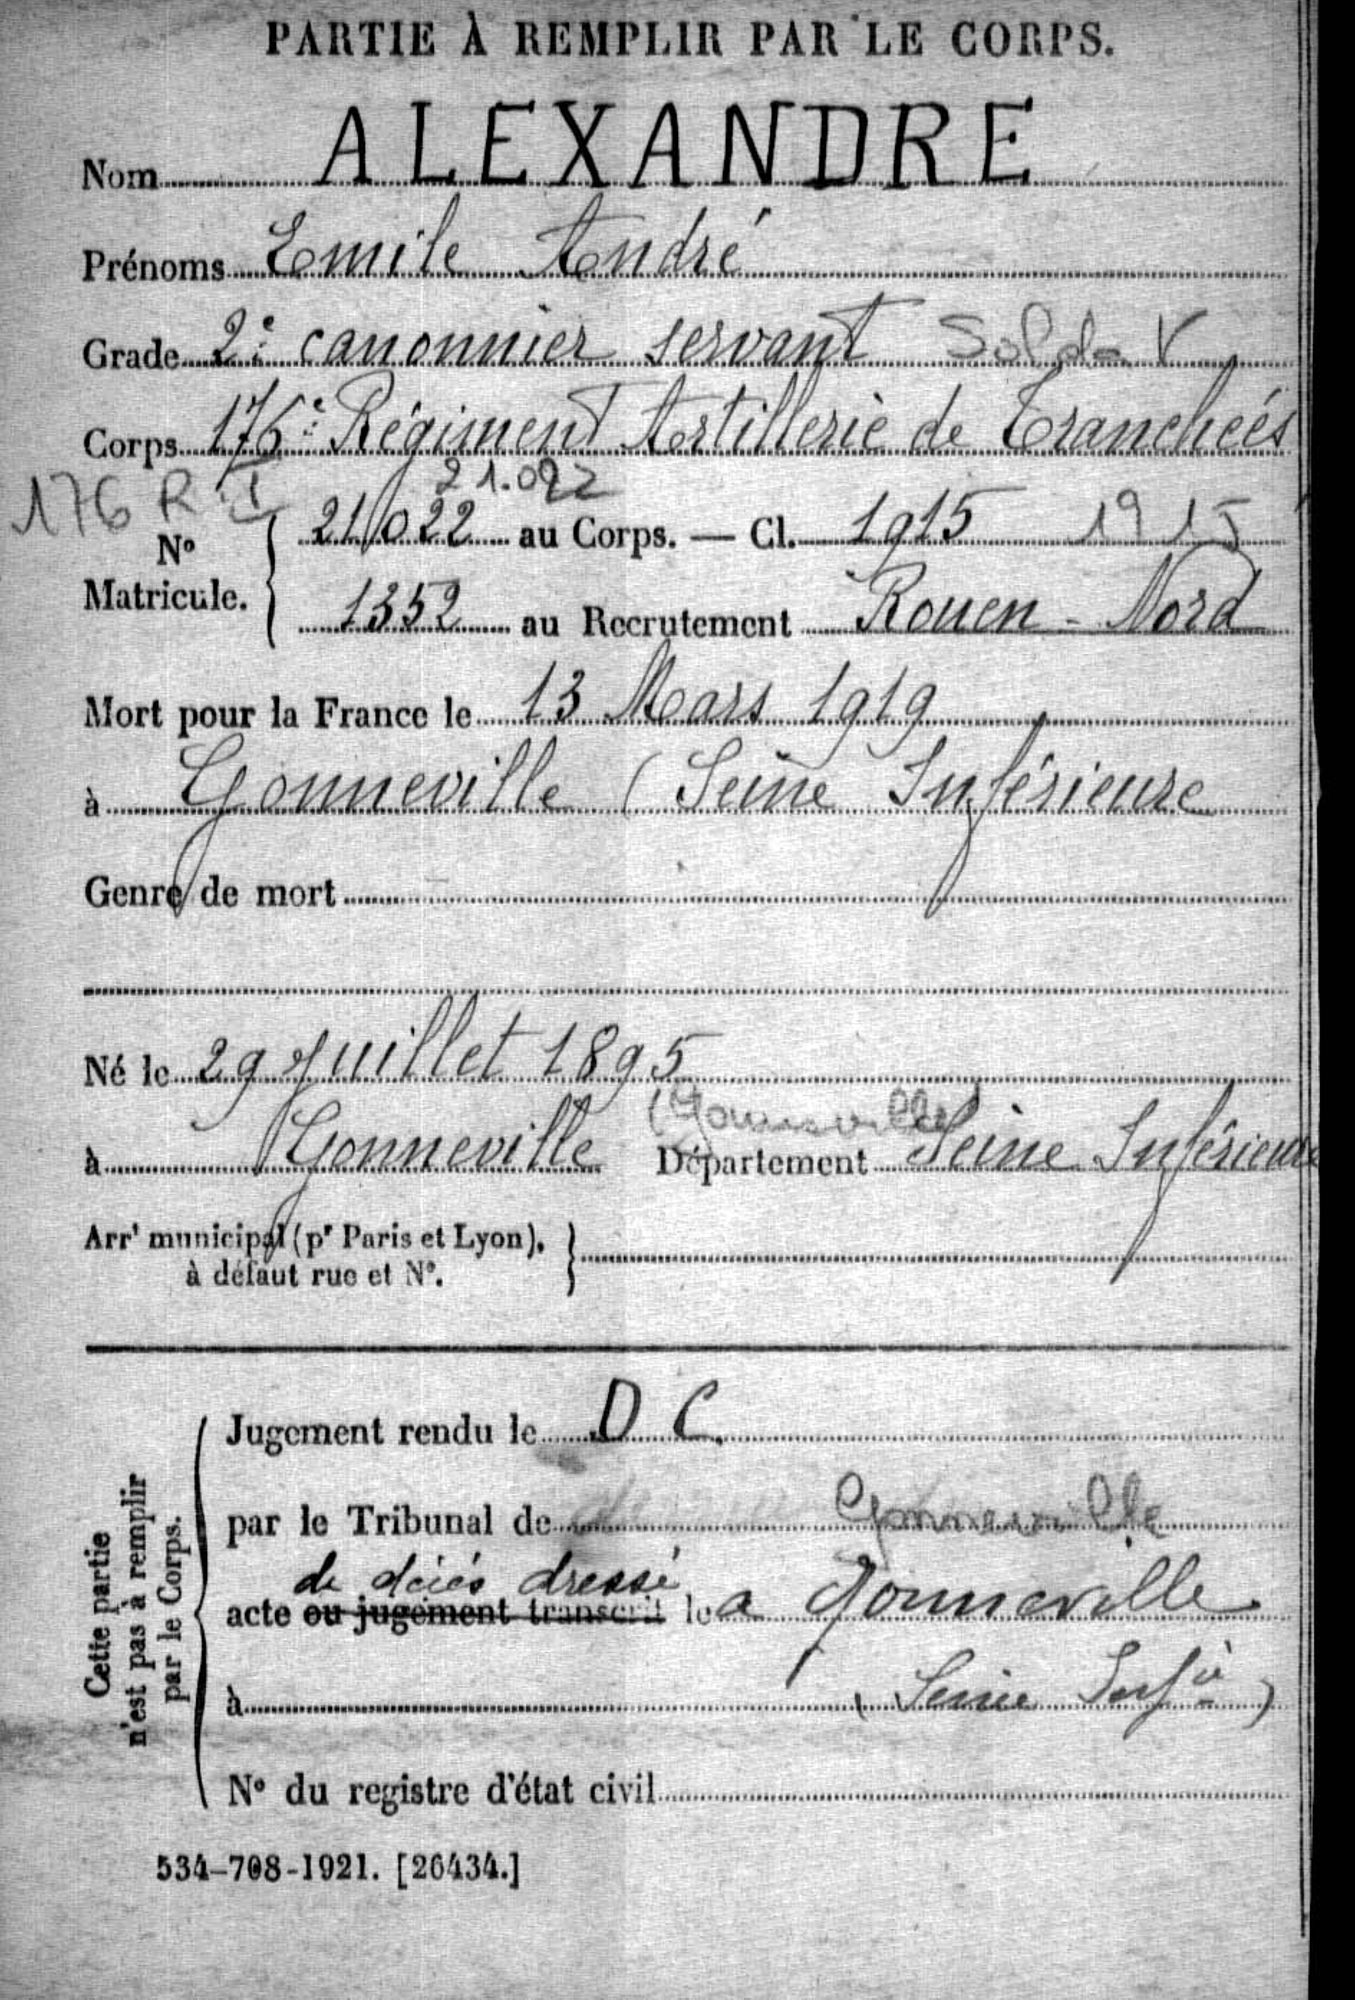 PARTIE À REMPLIR PAR LE CORPS.
Nom ALEXANDRE
Prénoms Emile André
Grade 2e canonnier servant Soldat
Corps 176e Régiment Artillerie de Tranchées
176 R.I 21.022
N° Matricule. 21022 au Corps. — Cl. 1915 1915
1352 au Recrutement Rouen - Nord
Mort pour la France le 13 Mars 1919
à Gonneville (Seine Inférieure
Genre de mort
Né le 29 Juillet 1895
(Gonneville)
à Gonneville Département Seine Inférieure
Arrt municipal (pr Paris et Lyon),
à défaut rue et N°.
Cette partie
n'est pas à remplir
par le Corps.
Jugement rendu le D C.
par le Tribunal de Gonneville
de décés dressé
acte ou jugement transcrit le a Gonneville
à (Seine Infre)
N° du registre d'état civil
534-708-1921. [26434.]